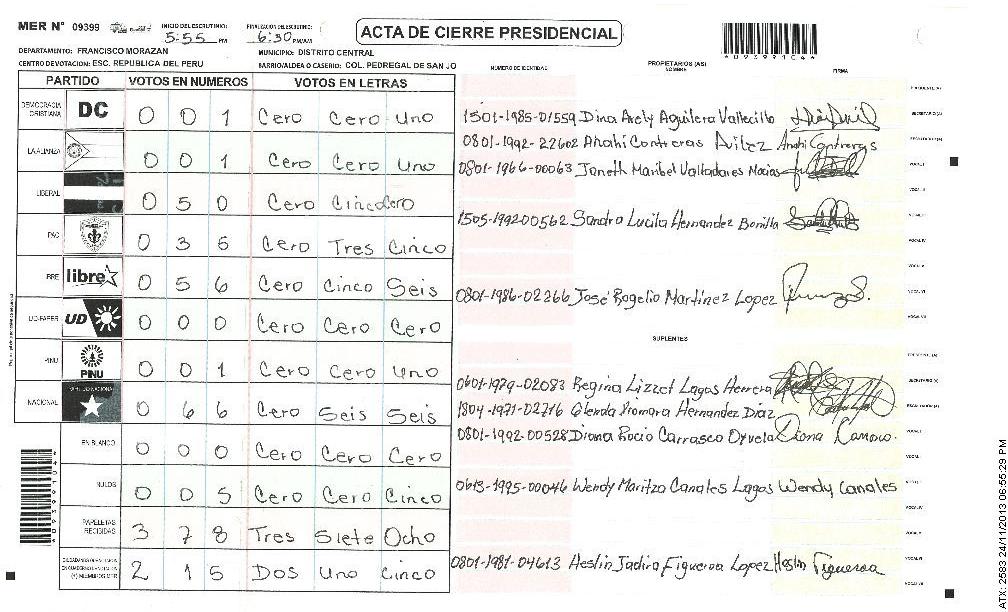 MER N° 09399 INICIO DEL ESCRUTINIO: 5:55 PM FINALIZACIÓN DEL ESCRUTINIO: 6:30 PM/AM ACTA DE CIERRE PRESIDENCIAL *09399104*
DEPARTAMENTO: FRANCISCO MORAZAN MUNICIPIO: DISTRITO CENTRAL
CENTRO DE VOTACION: ESC. REPUBLICA DEL PERU BARRIO/ALDEA O CASERIO: COL. PEDREGAL DE SAN JO
NÚMERO DE IDENTIDAD PROPIETARIOS (AS) NOMBRE FIRMA
PARTIDO VOTOS EN NUMEROS VOTOS EN LETRAS
DEMOCRACIA CRISTIANA DC 0 0 1 Cero Cero Uno
LA ALIANZA 0 0 1 Cero Cero Uno
LIBERAL 0 5 0 Cero Cinco Cero
PAC 0 3 5 Cero Tres Cinco
LIBRE libre 0 5 6 Cero Cinco Seis
UD-FAPER UD 0 0 0 Cero Cero Cero
PINU PINU 0 0 1 Cero Cero Uno
NACIONAL PARTIDO NACIONAL 0 6 6 Cero Seis Seis
EN BLANCO 0 0 0 Cero Cero Cero
NULOS 0 0 5 Cero Cero Cinco
PAPELETAS RECIBIDAS 3 7 8 Tres Siete Ocho
(+) MIEMBROS MER 2 1 5 Dos Uno Cinco
1501-1985-01559 Dina Arely Aguilera Vallecillo
0801-1992-22602 Anahi Contreras Avilez Anahi Contreras
0801-1966-00063 Janeth Maribel Valladares Macias
1505-1992-00562 Sandra Lucila Hernandez Bonilla
0801-1986-02266 José Rogelio Martinez Lopez
SUPLENTES
0601-1979-02083 Regina Lizzet Lagos Herrera
1804-1971-02716 Glenda Xiomara Hernandez Diaz
0801-1992-00528 Diana Rocio Carrasco Diana Carrasco
0615-1995-00046 Wendy Maritza Canales Lagos Wendy Canales
0801-1981-04613 Heslin Jadira Figueroa Lopez Heslin Figueroa
*09399104*
ATX: 2583 24/11/2013 06:55:29 PM